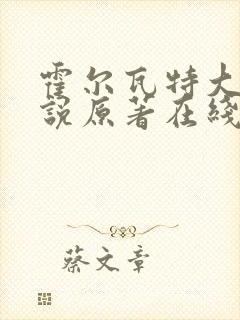 霍尔瓦特大
説原著在綫
蔡文章